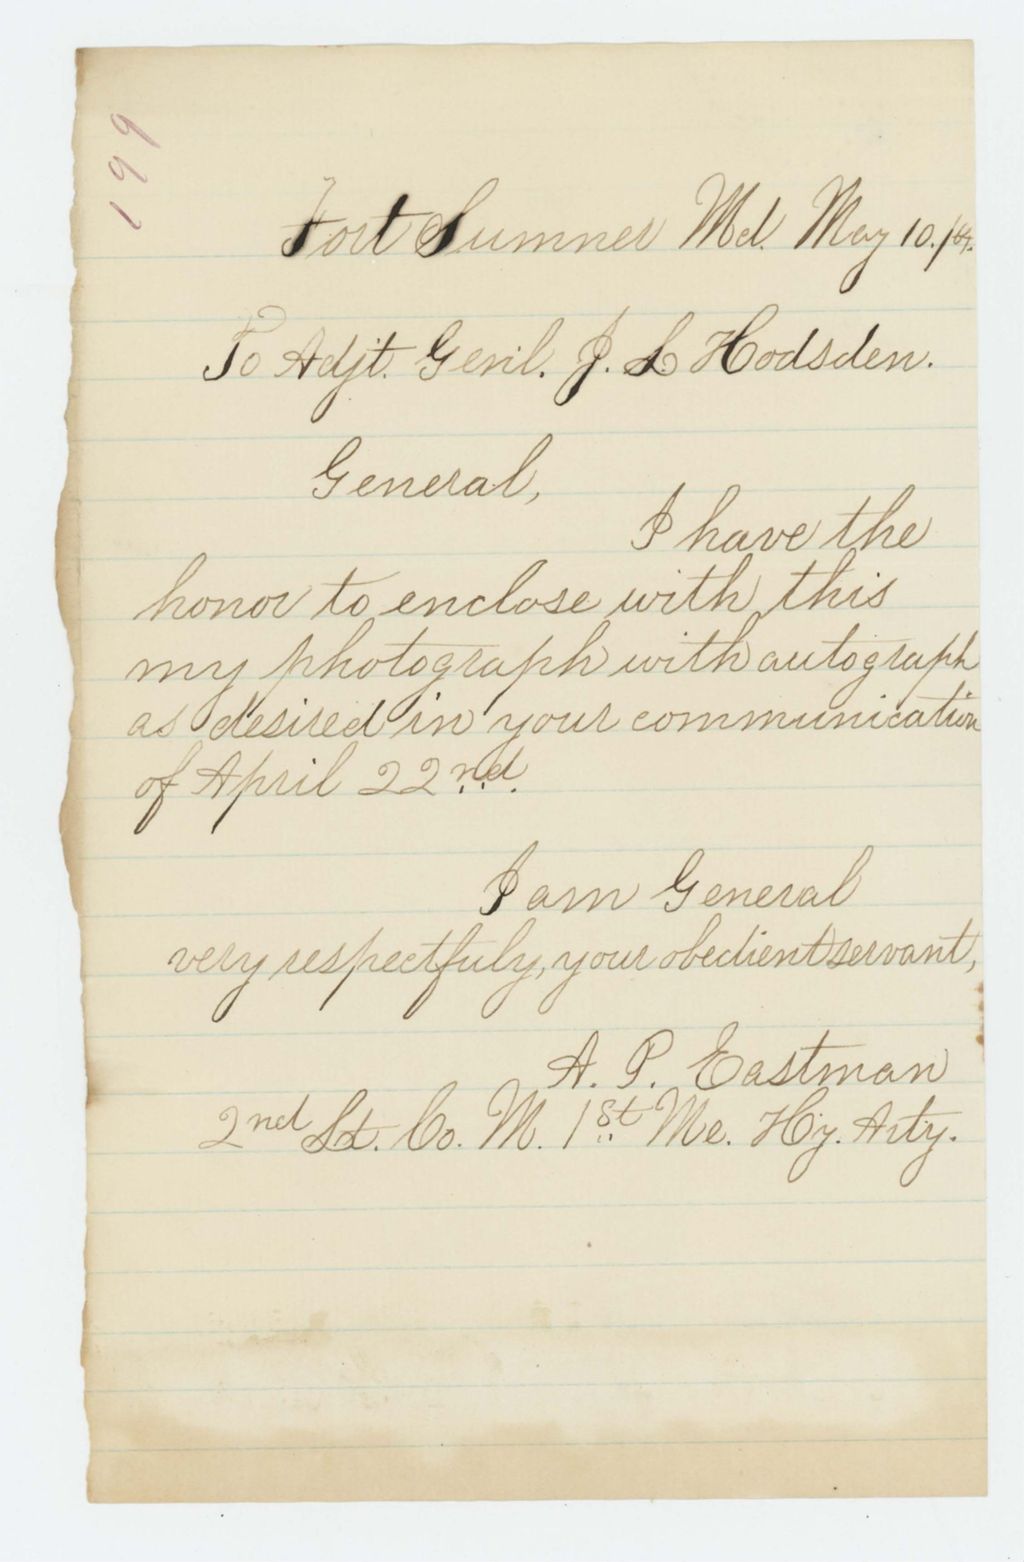 199
Fort Sumner Md. May 10. /64.
To Adjt. Genl. J. L Hodsden.
General,
I have the
honor to enclose with this
my photograph with autograph
as desired in your communication
of April 22nd.
I am General
very respectfuly, your obedient servant,
A. P. Eastman
2nd Lt. Co. M. 1st Me. Hy. Arty.